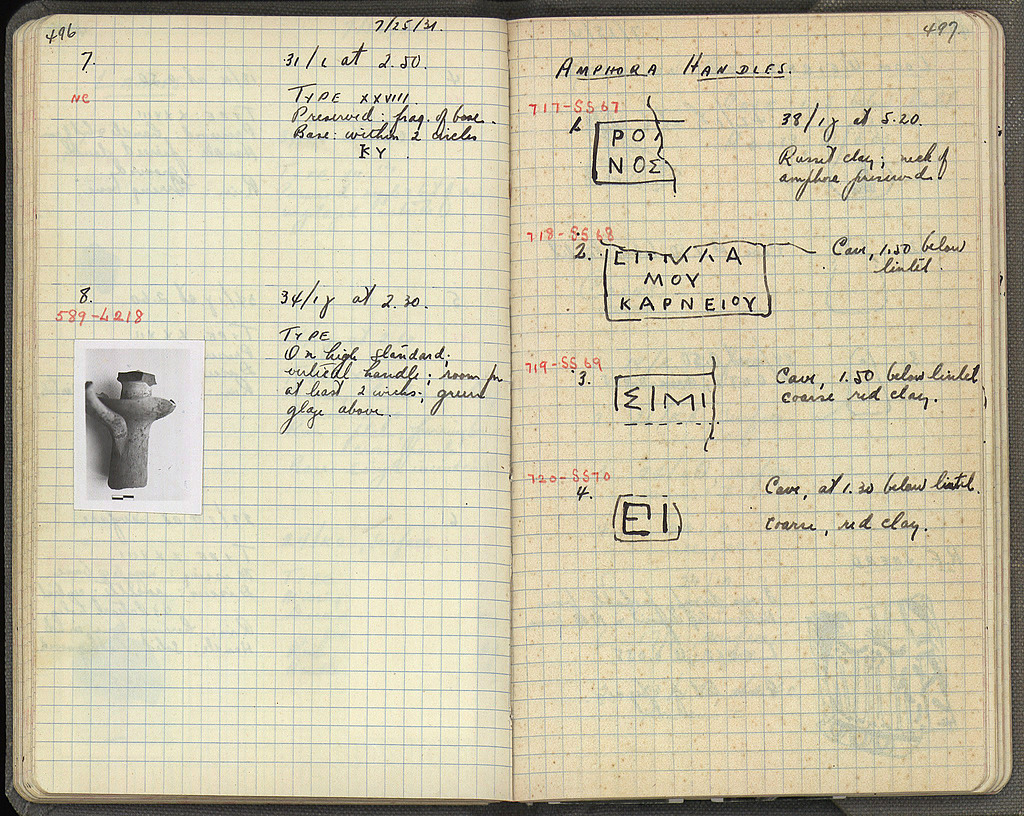 496
7/25/31.
7.
31/L at 2.50.
NC
TYPE XXVIII.
Preserved: frag. of base.
Base: within 2 circles
KY
8.
34/ΙΓ at 2.30.
589-L218
TYPE
On high standard;
vertical handle; room for
at least 2 wicks; green
glaze above.
497
AMPHORA HANDLES.
717-SS67
1.
38/ΙΓ at 5.20.
ΡΟ
ΝΟΣ
Russet clay; neck of
amphora preserved.
718-SS68
2.
Cave, 1.50 below
lintel.
ΜΟΥ
ΚΑΡΝΕΙΟΥ
719-SS69
3.
Cave, 1.50 below lintel
coarse red clay.
ΣΙΜΙ
720-SS70
4.
Cave, at 1.30 below lintel.
ΕΠΙ
coarse, red clay.